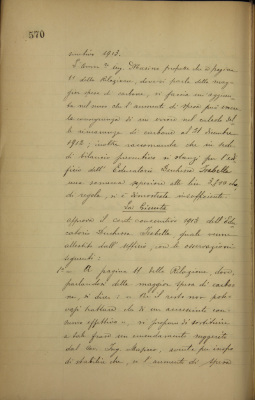 570
cembre 1913.
L'Onor. ing. Marino propone che a pagina
11 della Relazione, dove si parla delle mag-
giori spese di carbone, si faccia un'aggiun-
ta nel senso che l'aumento di spesa può essere
la conseguenza di un errore nel calcolo del-
le rimanenze di carbone al 31 Dicembre
1912; inoltre raccomanda che in sede
di bilancio preventivo si stanzi per l'edi-
ficio dell'Educatorio Duchessa Isabella
una somma superiore alle lire 2500 che
di regola, si è dimostrata insufficiente.
La Giunta
approva il conto consuntivo 1913 dell'Edu-
catorio Duchessa Isabella, quale venne
allestito dall'ufficio, con le osservazioni
seguenti:
1° - A pagina 11 della Relazione, dove,
parlandosi della maggior spesa di carbo-
ne, si dice: " Che il resto non po-
trebbe trattarsi che di un accresciuto con-
sumo effettivo ", si propone di sostituire
a tale frase un emendamento suggerito
dal Cav. Ing. Marino, anche per incarico
di stabilire che, " l'aumento di spesa